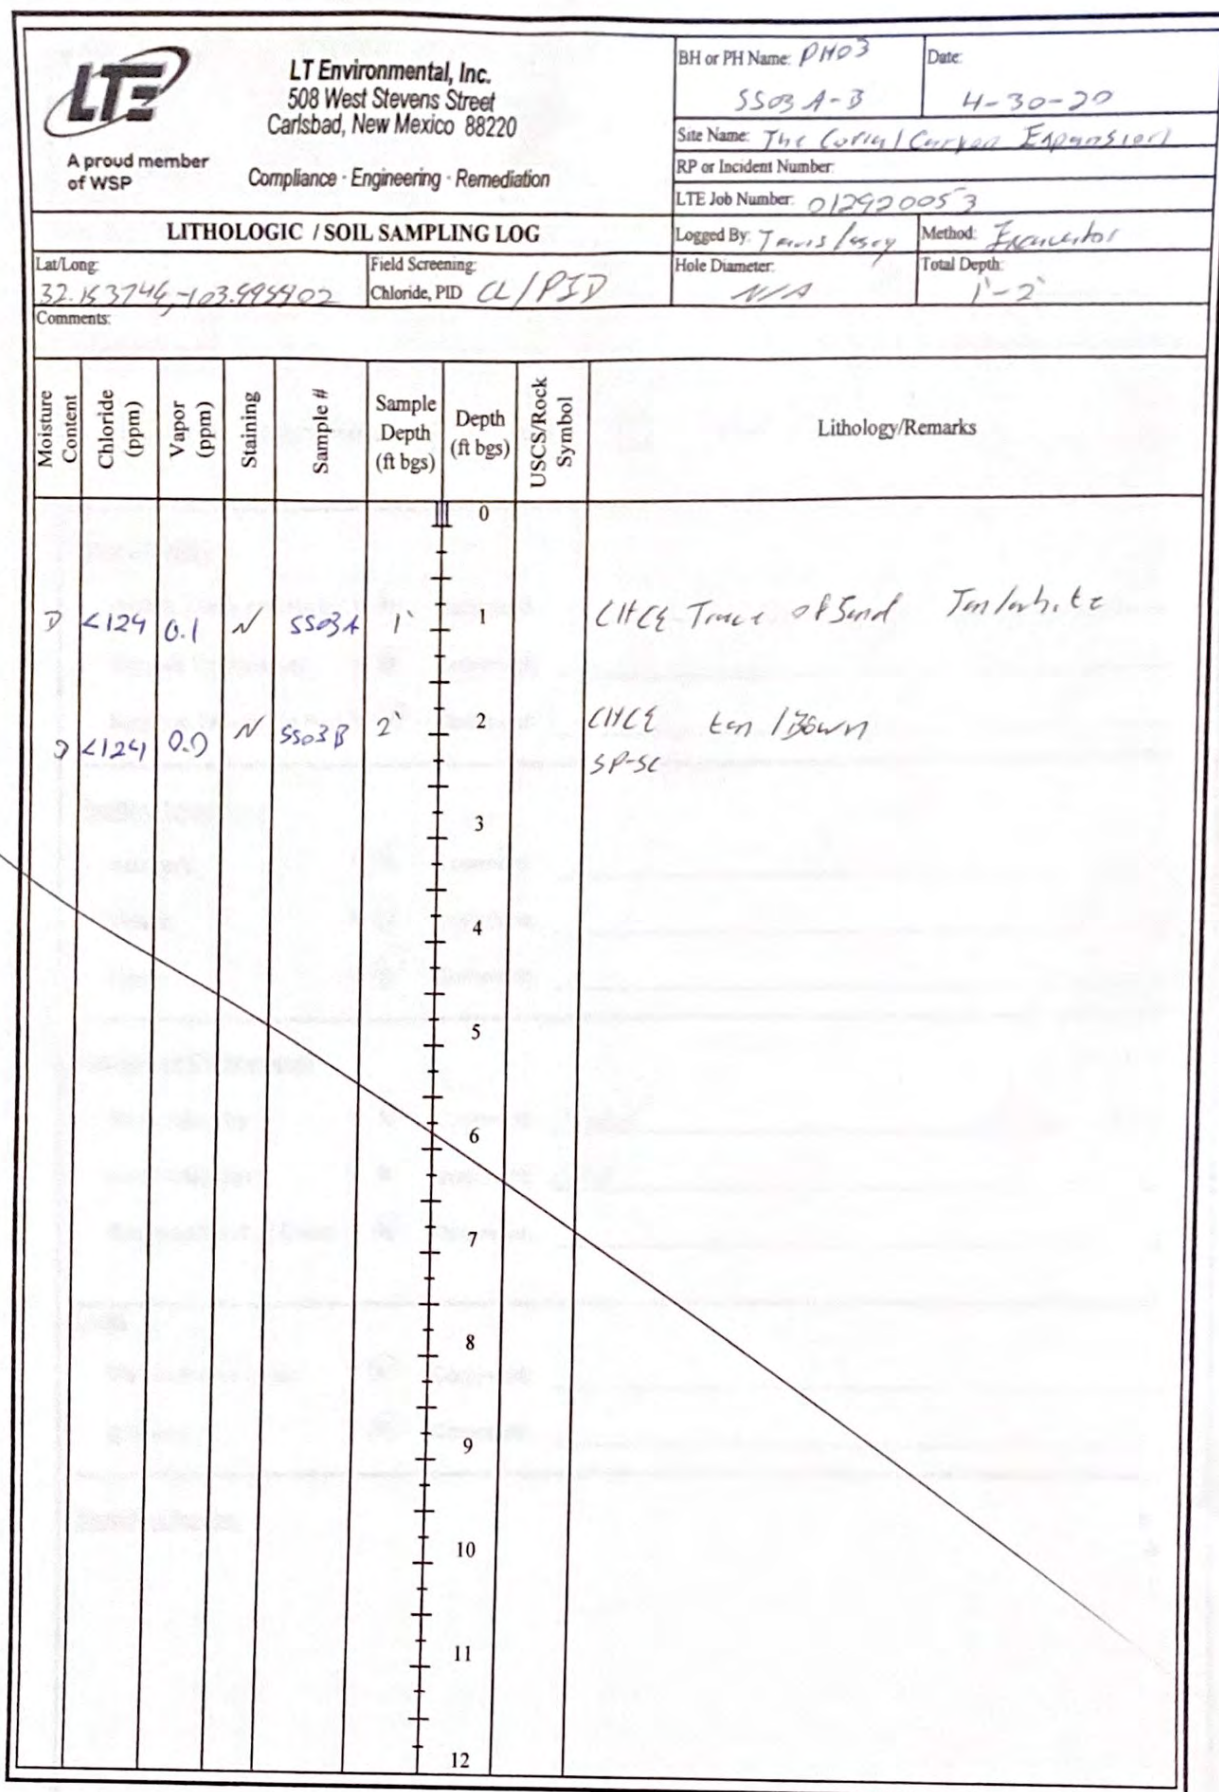 LTE
A proud member
of WSP
LT Environmental, Inc.
508 West Stevens Street
Carlsbad, New Mexico 88220
Compliance · Engineering · Remediation
BH or PH Name: PH03
SS03 A-B
Date:
4-30-20
Site Name: The Expansion
RP or Incident Number:
LTE Job Number: 012920053
LITHOLOGIC / SOIL SAMPLING LOG
Logged By: Travis
Method: Excavator
Lat/Long:
Field Screening:
Chloride, PID CL/PID
Hole Diameter:
N/A
Total Depth:
1'-2'
Comments:
Moisture Content
Chloride (ppm)
Vapor (ppm)
Staining
Sample #
Sample Depth (ft bgs)
Depth (ft bgs)
USCS/Rock Symbol
Lithology/Remarks
0
D <124 0.1 N SS03A 1' 1 Trace of Sand Tan/white
D <124 0.0 N SS03B 2' 2 tan /
SP-SC
3
4
5
6
7
8
9
10
11
12